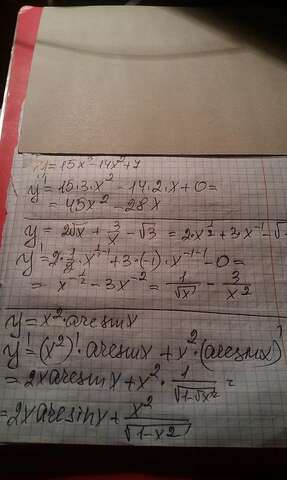 y = 15x³ - 14x² + 7
y' = 15·3·x² - 14·2·x + 0 =
= 45x² - 28x
y = 2√x + 3/x - √3 = 2·x^(1/2) + 3·x⁻¹ - √
y' = 2·1/2·x^(1/2-1) + 3·(-1)·x^(-1-1) - 0 =
= x^(-1/2) - 3x⁻² = 1/√x - 3/x²
y = x²·arcsinx
y' = (x²)'·arcsinx + x²·(arcsinx)'
= 2x arcsinx + x²·1/√(1-x²) =
= 2x arcsinx + x²/√(1-x²)